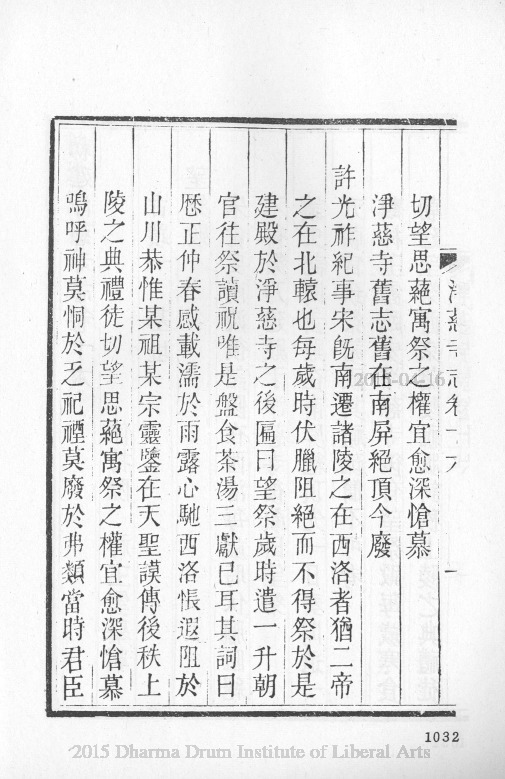 淨慈寺志卷十六 一
切望思蕝寓祭之權宜愈深愴慕
淨慈寺舊志舊在南屏絕頂今廢
許光祚紀事宋旣南遷諸陵之在西洛者猶二帝
之在北轅也每歲時伏臘阻絕而不得祭於是
建殿於淨慈寺之後匾曰望祭歲時遣一升朝
官往祭讀祝唯是盤食茶湯三獻已耳其詞曰
厯正仲春感載濡於雨露心馳西洛悵遐阻於
山川恭惟某祖某宗靈鑒在天聖謨傳後秩上
陵之典禮徒切望思蕝寓祭之權宜愈深愴慕
嗚呼神莫恫於乏祀禋莫廢於弗類當時君臣
1032
2015 Dharma Drum Institute of Liberal Arts